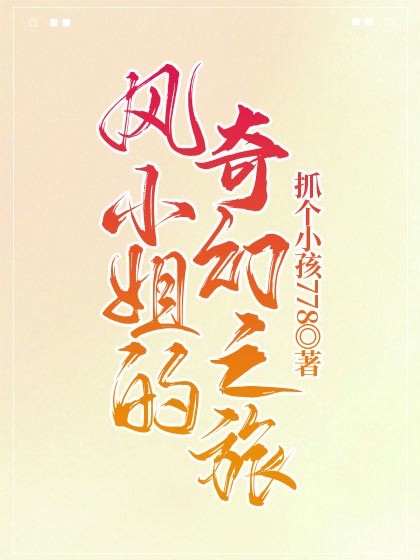 风小姐的
奇幻之旅
抓个小孩778◎著